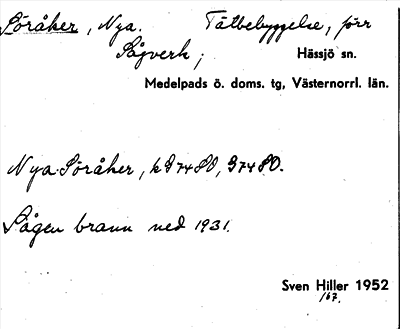 Söråker, Nya. Tätbebyggelse, förr
Sågverk; Hässjö sn.
Medelpads ö. doms. tg, Västernorrl. län.
Nya Söråker, k 9748D, 3748D.
Sågen brann ned 1931.
Sven Hiller 1952
167.